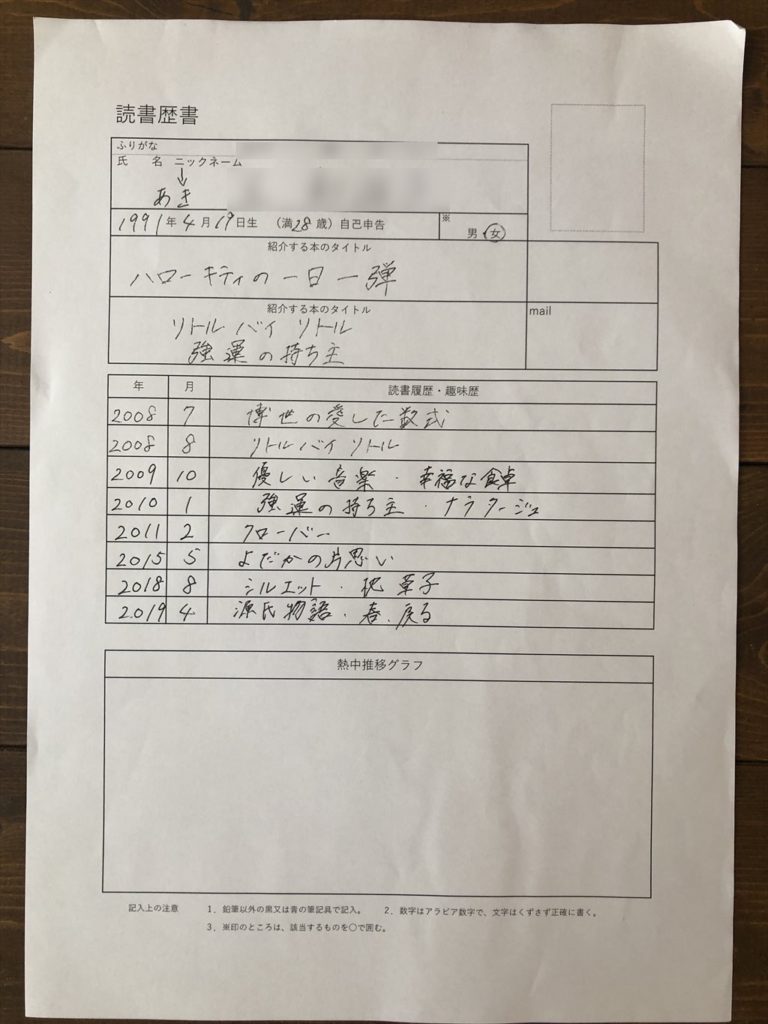 読書歴書
ふりがな
氏 名 ニックネーム
↓
あき
1991年4月19日生 (満28歳) 自己申告
※
男・女
紹介する本のタイトル
ハローキティの一日一弾
紹介する本のタイトル
リトル バイ リトル
強運の持ち主
mail
年 月 読書履歴・趣味歴
2008 7 博世の愛した数式
2008 8 リトル バイ リトル
2009 10 優しい音楽・幸福な食卓
2010 1 強運の持ち主・ナラタージュ
2011 2 クローバー
2015 5 よだかの片思い
2018 8 シルエット・枕草子
2019 4 源氏物語・春、戻る
熱中推移グラフ
記入上の注意 1．鉛筆以外の黒又は青の筆記具で記入。 2．数字はアラビア数字で、文字はくずさず正確に書く。
3．※印のところは、該当するものを〇で囲む。